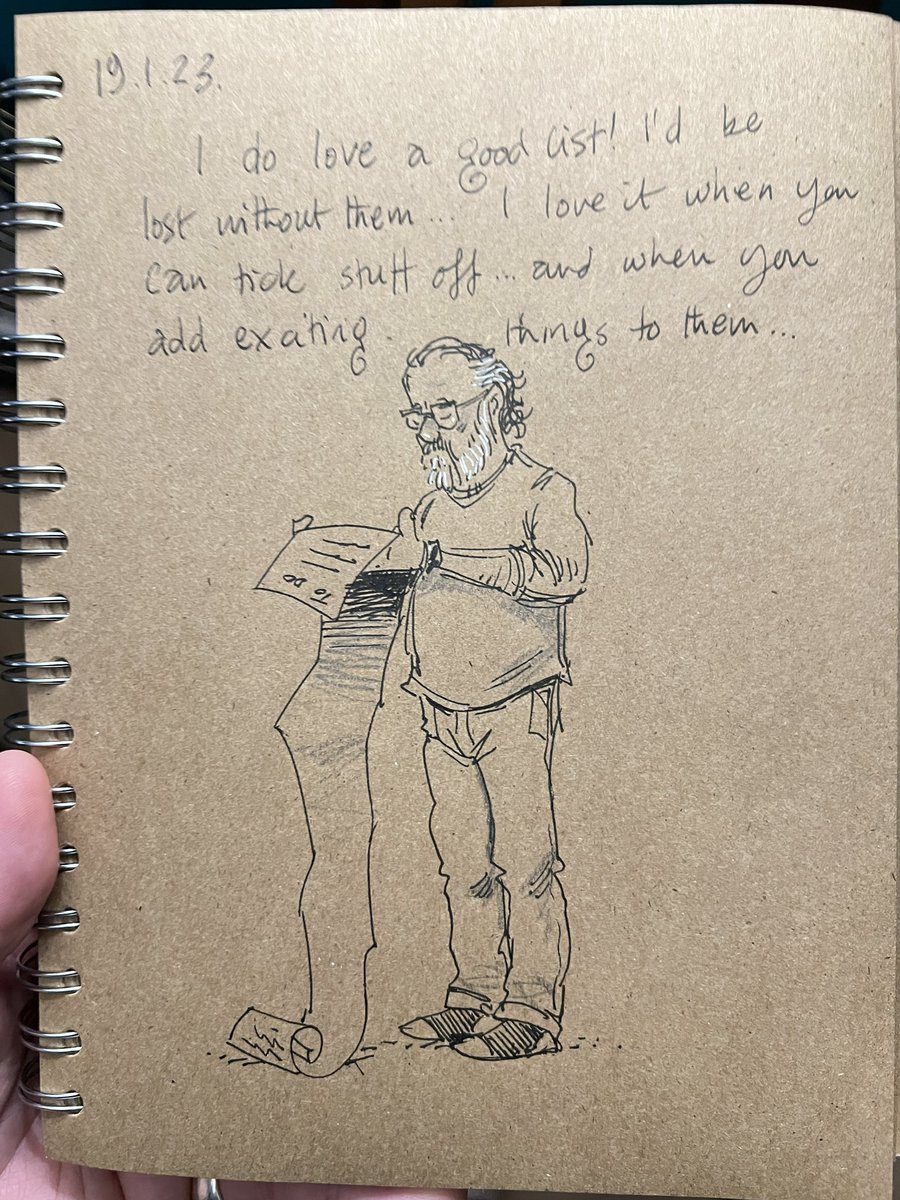 19.1.23.
I do love a good list! I'd be
lost without them... I love it when you
can tick stuff off... and when you
add exciting things to them...
TO DO